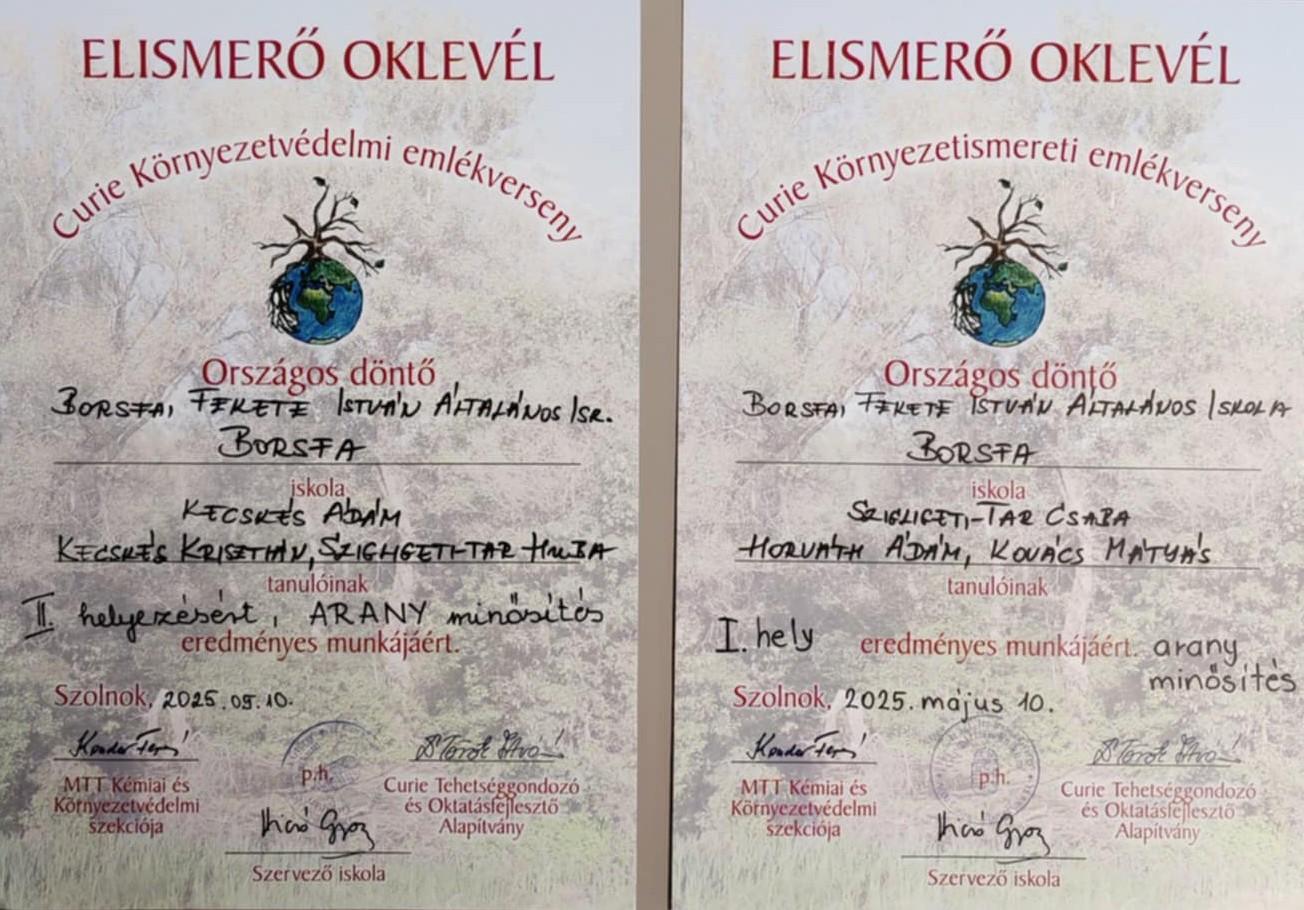 ELISMERŐ OKLEVÉL
Curie Környezetvédelmi emlékverseny
Országos döntő
BORSFAI FEKETE ISTVÁN ÁLTALÁNOS ISK.
BORSFA
iskola
KECSKÉS ÁDÁM
KECSKÉS KRISZTIÁN, SZIGLIGETI-TAR HUBA
tanulóinak
II. helyezésért, ARANY minősítés
eredményes munkájáért.
Szolnok, 2025.05.10.
MTT Kémiai és
Környezetvédelmi
szekciója
p.h.
Curie Tehetséggondozó
és Oktatásfejlesztő
Alapítvány
Szervező iskola
ELISMERŐ OKLEVÉL
Curie Környezetismereti emlékverseny
Országos döntő
BORSFAI FEKETE ISTVÁN ÁLTALÁNOS ISKOLA
BORSFA
iskola
SZIGLIGETI-TAR CSABA
HORVÁTH ÁDÁM, KOVÁCS MÁTYÁS
tanulóinak
I. hely eredményes munkájáért. arany
minősítés
Szolnok, 2025. május 10.
MTT Kémiai és
Környezetvédelmi
szekciója
p.h.
Curie Tehetséggondozó
és Oktatásfejlesztő
Alapítvány
Szervező iskola